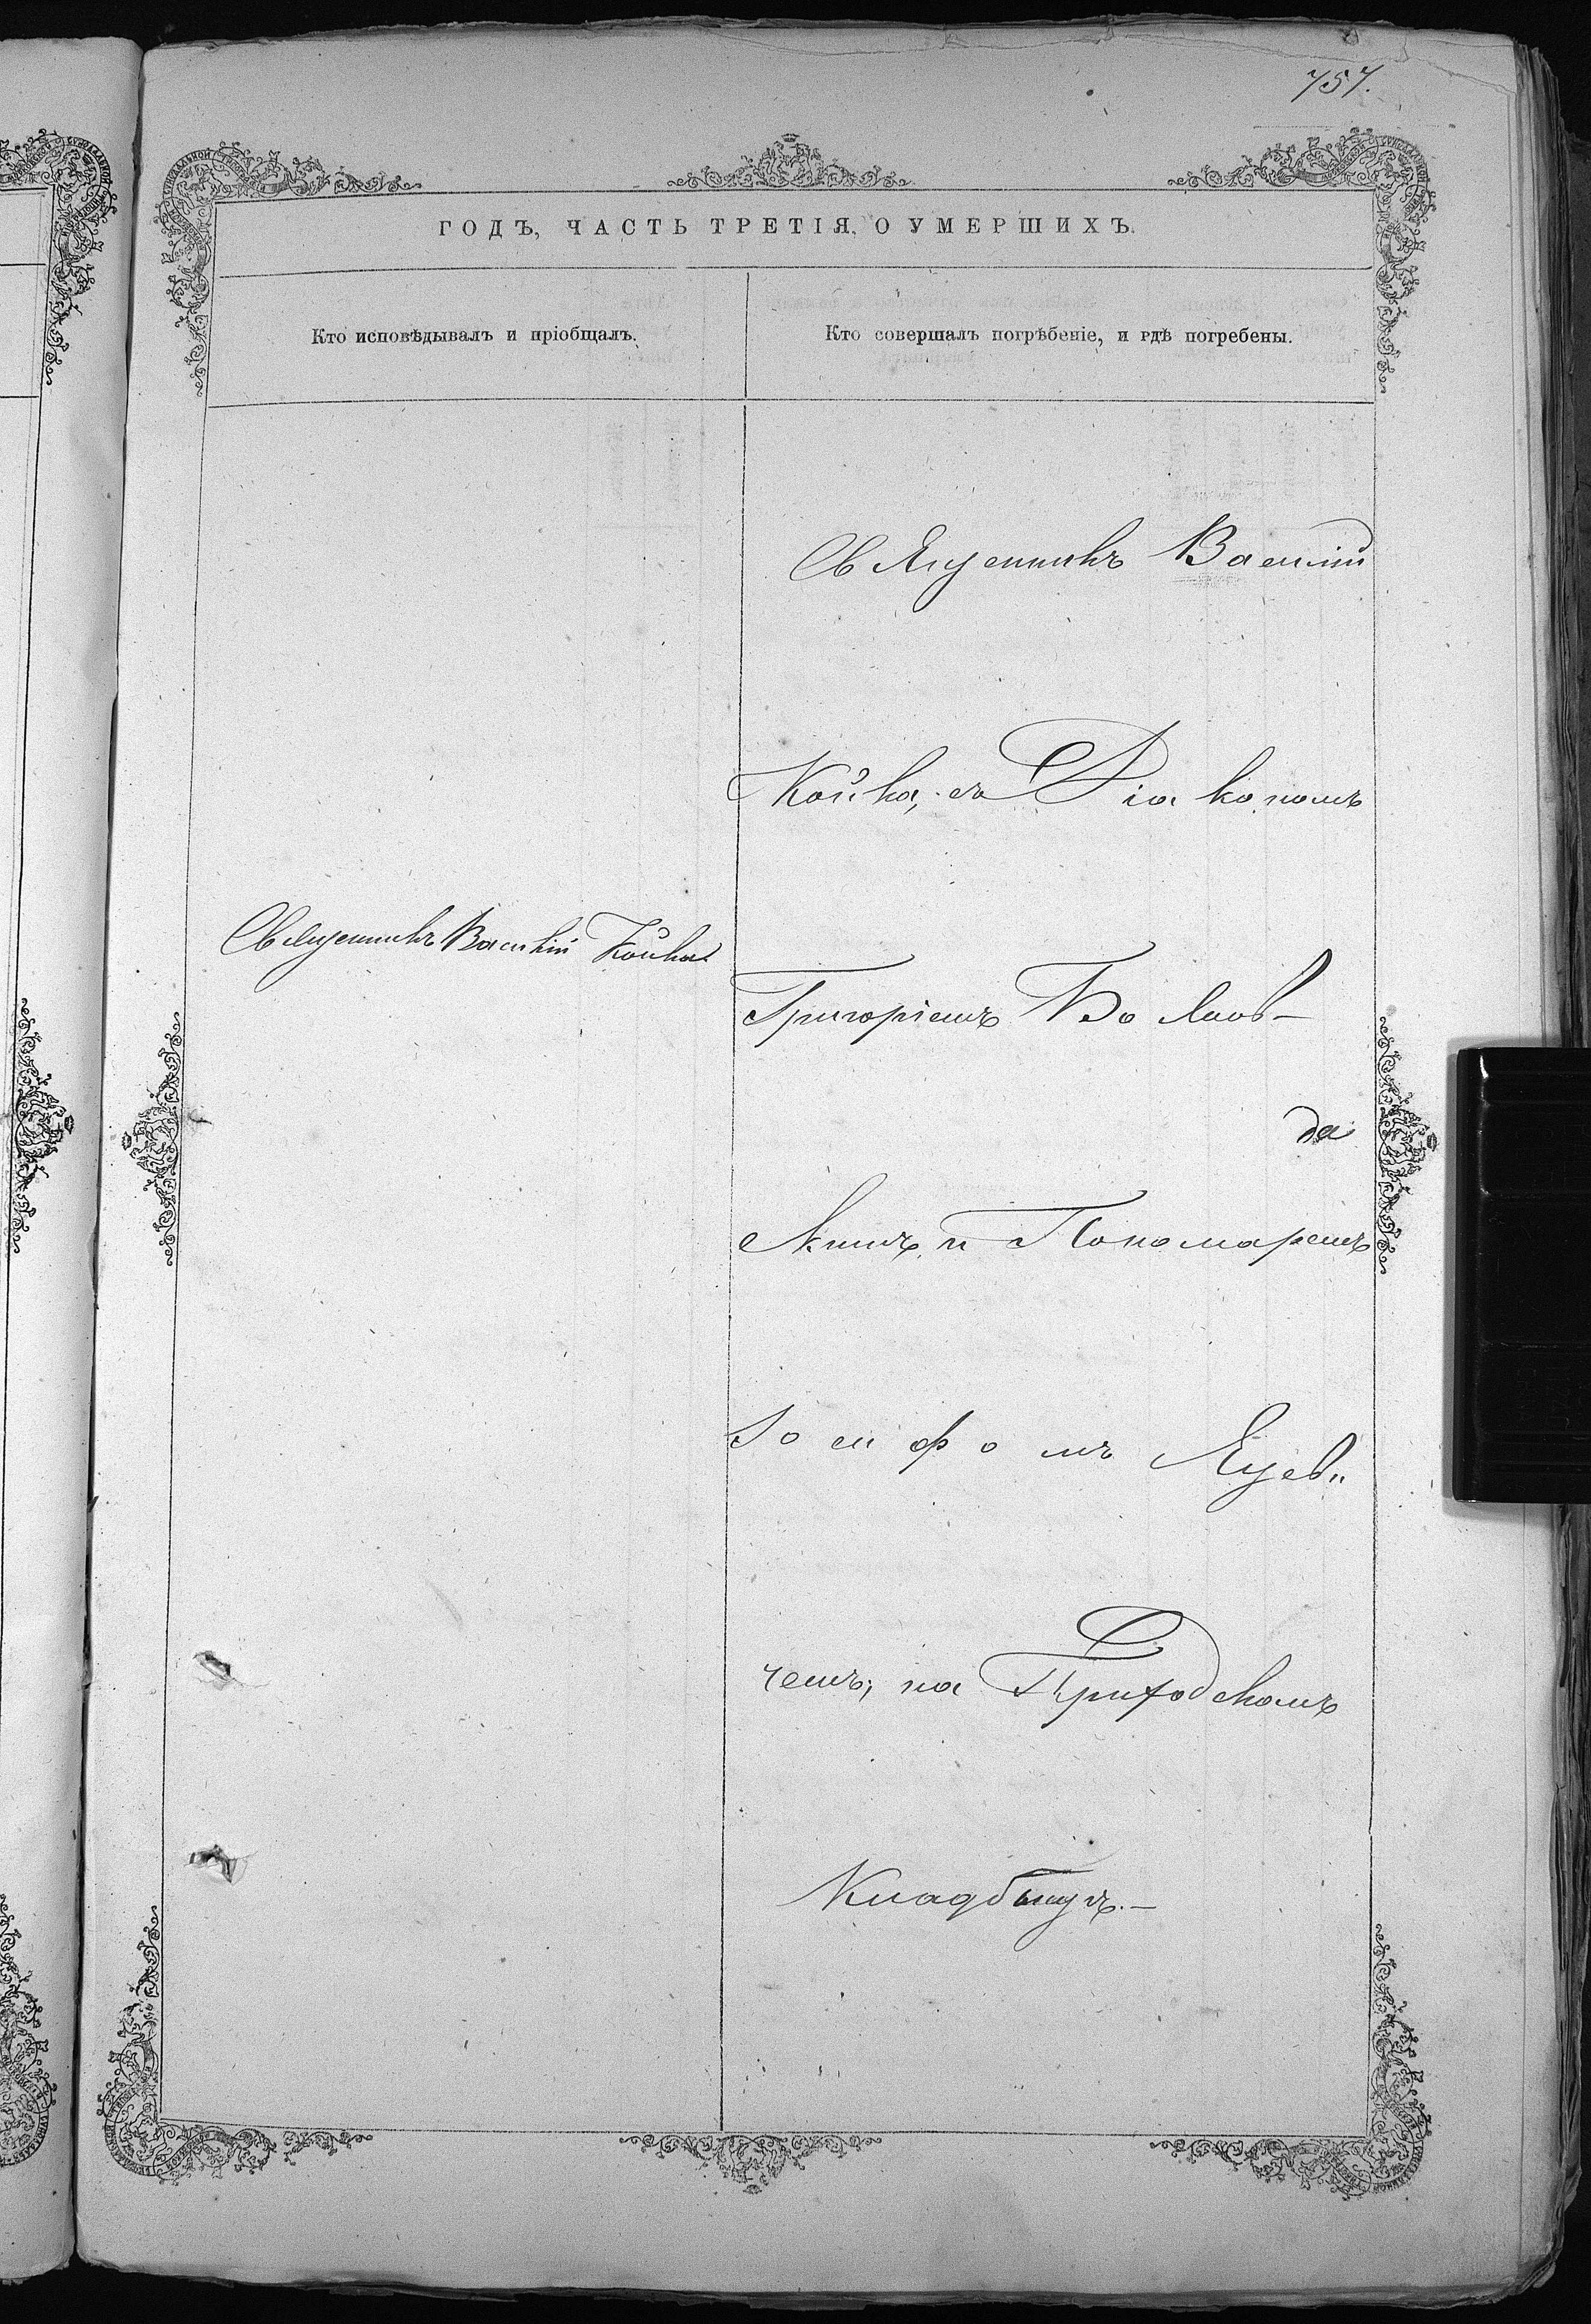 757.
ГОДЪ, ЧАСТЬ ТРЕТІЯ, О УМЕРШИХЪ.
Кто исповѣдывалъ и пріобщалъ.
Кто совершалъ погрѣбеніе, и гдѣ погребены.
Священникъ Василій Койка
Священникъ Василій
Койка, съ Діакономъ
Григоріемъ
да
и Пономаремъ
Іосифомъ Яцеви
чемъ, на Приходскомъ
Кладбищѣ.—